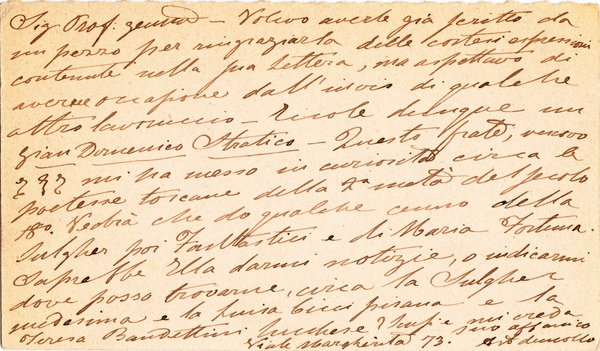 Sig. Prof. gentilmo – Volevo averle già scritto da
un pezzo per ringraziarla delle cortesi espressioni
contenute nella sua lettera, ma aspettavo di
avere occasione dall'invio di qualche
altro lavoruccio – Eccole dunque un
Gian Domenico Stratico – Questo frate, vescovo
mi ha messo in curiosità circa le
poetesse toscane della 2a metà del secolo
18o. Vedrà che do qualche cenno della
Sulgher poi Fantastici e di Maria Fortuna.
Saprebbe Ella darmi notizie, o indicarmi
dove posso trovarne, circa la Sulgher
medesima e la Luisa Cicci pisana e la
Teresa Bandettini lucchese? Scusi e mi creda
Viale Margherita 73. suo affmo